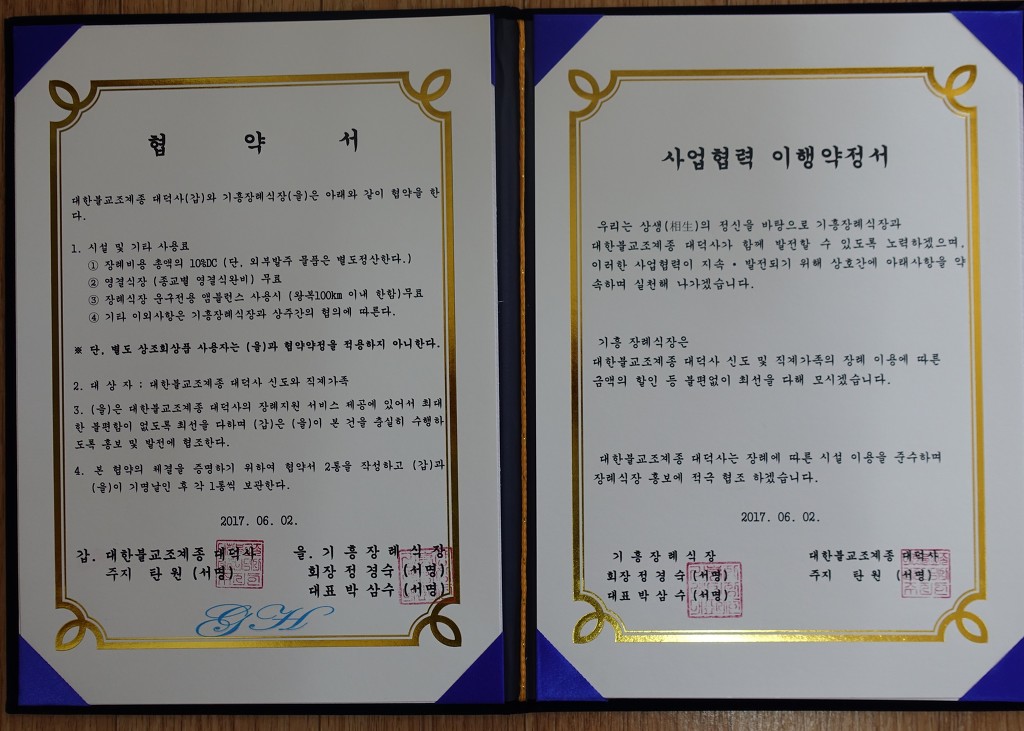 협 약 서
대한불교조계종 대덕사(갑)와 기흥장례식장(을)은 아래와 같이 협약을 한
다.
1. 시설 및 기타 사용료
① 장례비용 총액의 10%DC (단, 외부발주 물품은 별도정산한다.)
② 영결식장 (종교별 영결식완비) 무료
③ 장례식장 운구전용 앰블런스 사용시 (왕복100km 이내 한함)무료
④ 기타 이외사항은 기흥장례식장과 상주간의 협의에 따른다.
※ 단, 별도 상조회상품 사용자는 (을)과 협약약정을 적용하지 아니한다.
2. 대 상 자 : 대한불교조계종 대덕사 신도와 직계가족
3. (을)은 대한불교조계종 대덕사의 장례지원 서비스 제공에 있어서 최대
한 불편함이 없도록 최선을 다하며 (갑)은 (을)이 본 건을 충실히 수행하
도록 홍보 및 발전에 협조한다.
4. 본 협약의 체결을 증명하기 위하여 협약서 2통을 작성하고 (갑)과
(을)이 기명날인 후 각 1통씩 보관한다.
2017. 06. 02.
갑. 대한불교조계종 대덕사
주지 탄 원 (서명)
을. 기 흥 장 례 식 장
회장 정 경숙 (서명)
대표 박 삼수 (서명)
GH
사업협력 이행약정서
우리는 상생(相生)의 정신을 바탕으로 기흥장례식장과
대한불교조계종 대덕사가 함께 발전할 수 있도록 노력하겠으며,
이러한 사업협력이 지속・발전되기 위해 상호간에 아래사항을 약
속하며 실천해 나가겠습니다.
기흥 장례식장은
대한불교조계종 대덕사 신도 및 직계가족의 장례 이용에 따른
금액의 할인 등 불편없이 최선을 다해 모시겠습니다.
대한불교조계종 대덕사는 장례에 따른 시설 이용을 준수하며
장례식장 홍보에 적극 협조 하겠습니다.
2017. 06. 02.
기 흥 장 례 식 장
회장 정 경 숙 (서명)
대표 박 삼 수 (서명)
대한불교조계종 대덕사
주지 탄 원 (서명)